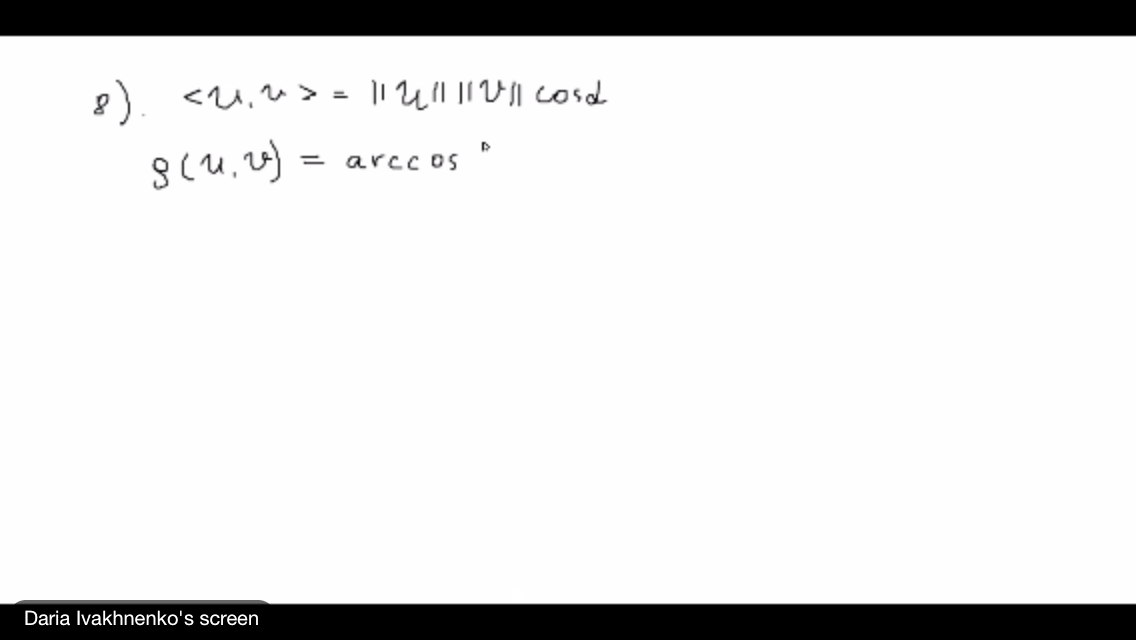 8). <u, v> = ||u|| ||v|| cosα
ρ(u, v) = arccos
Daria Ivakhnenko's screen